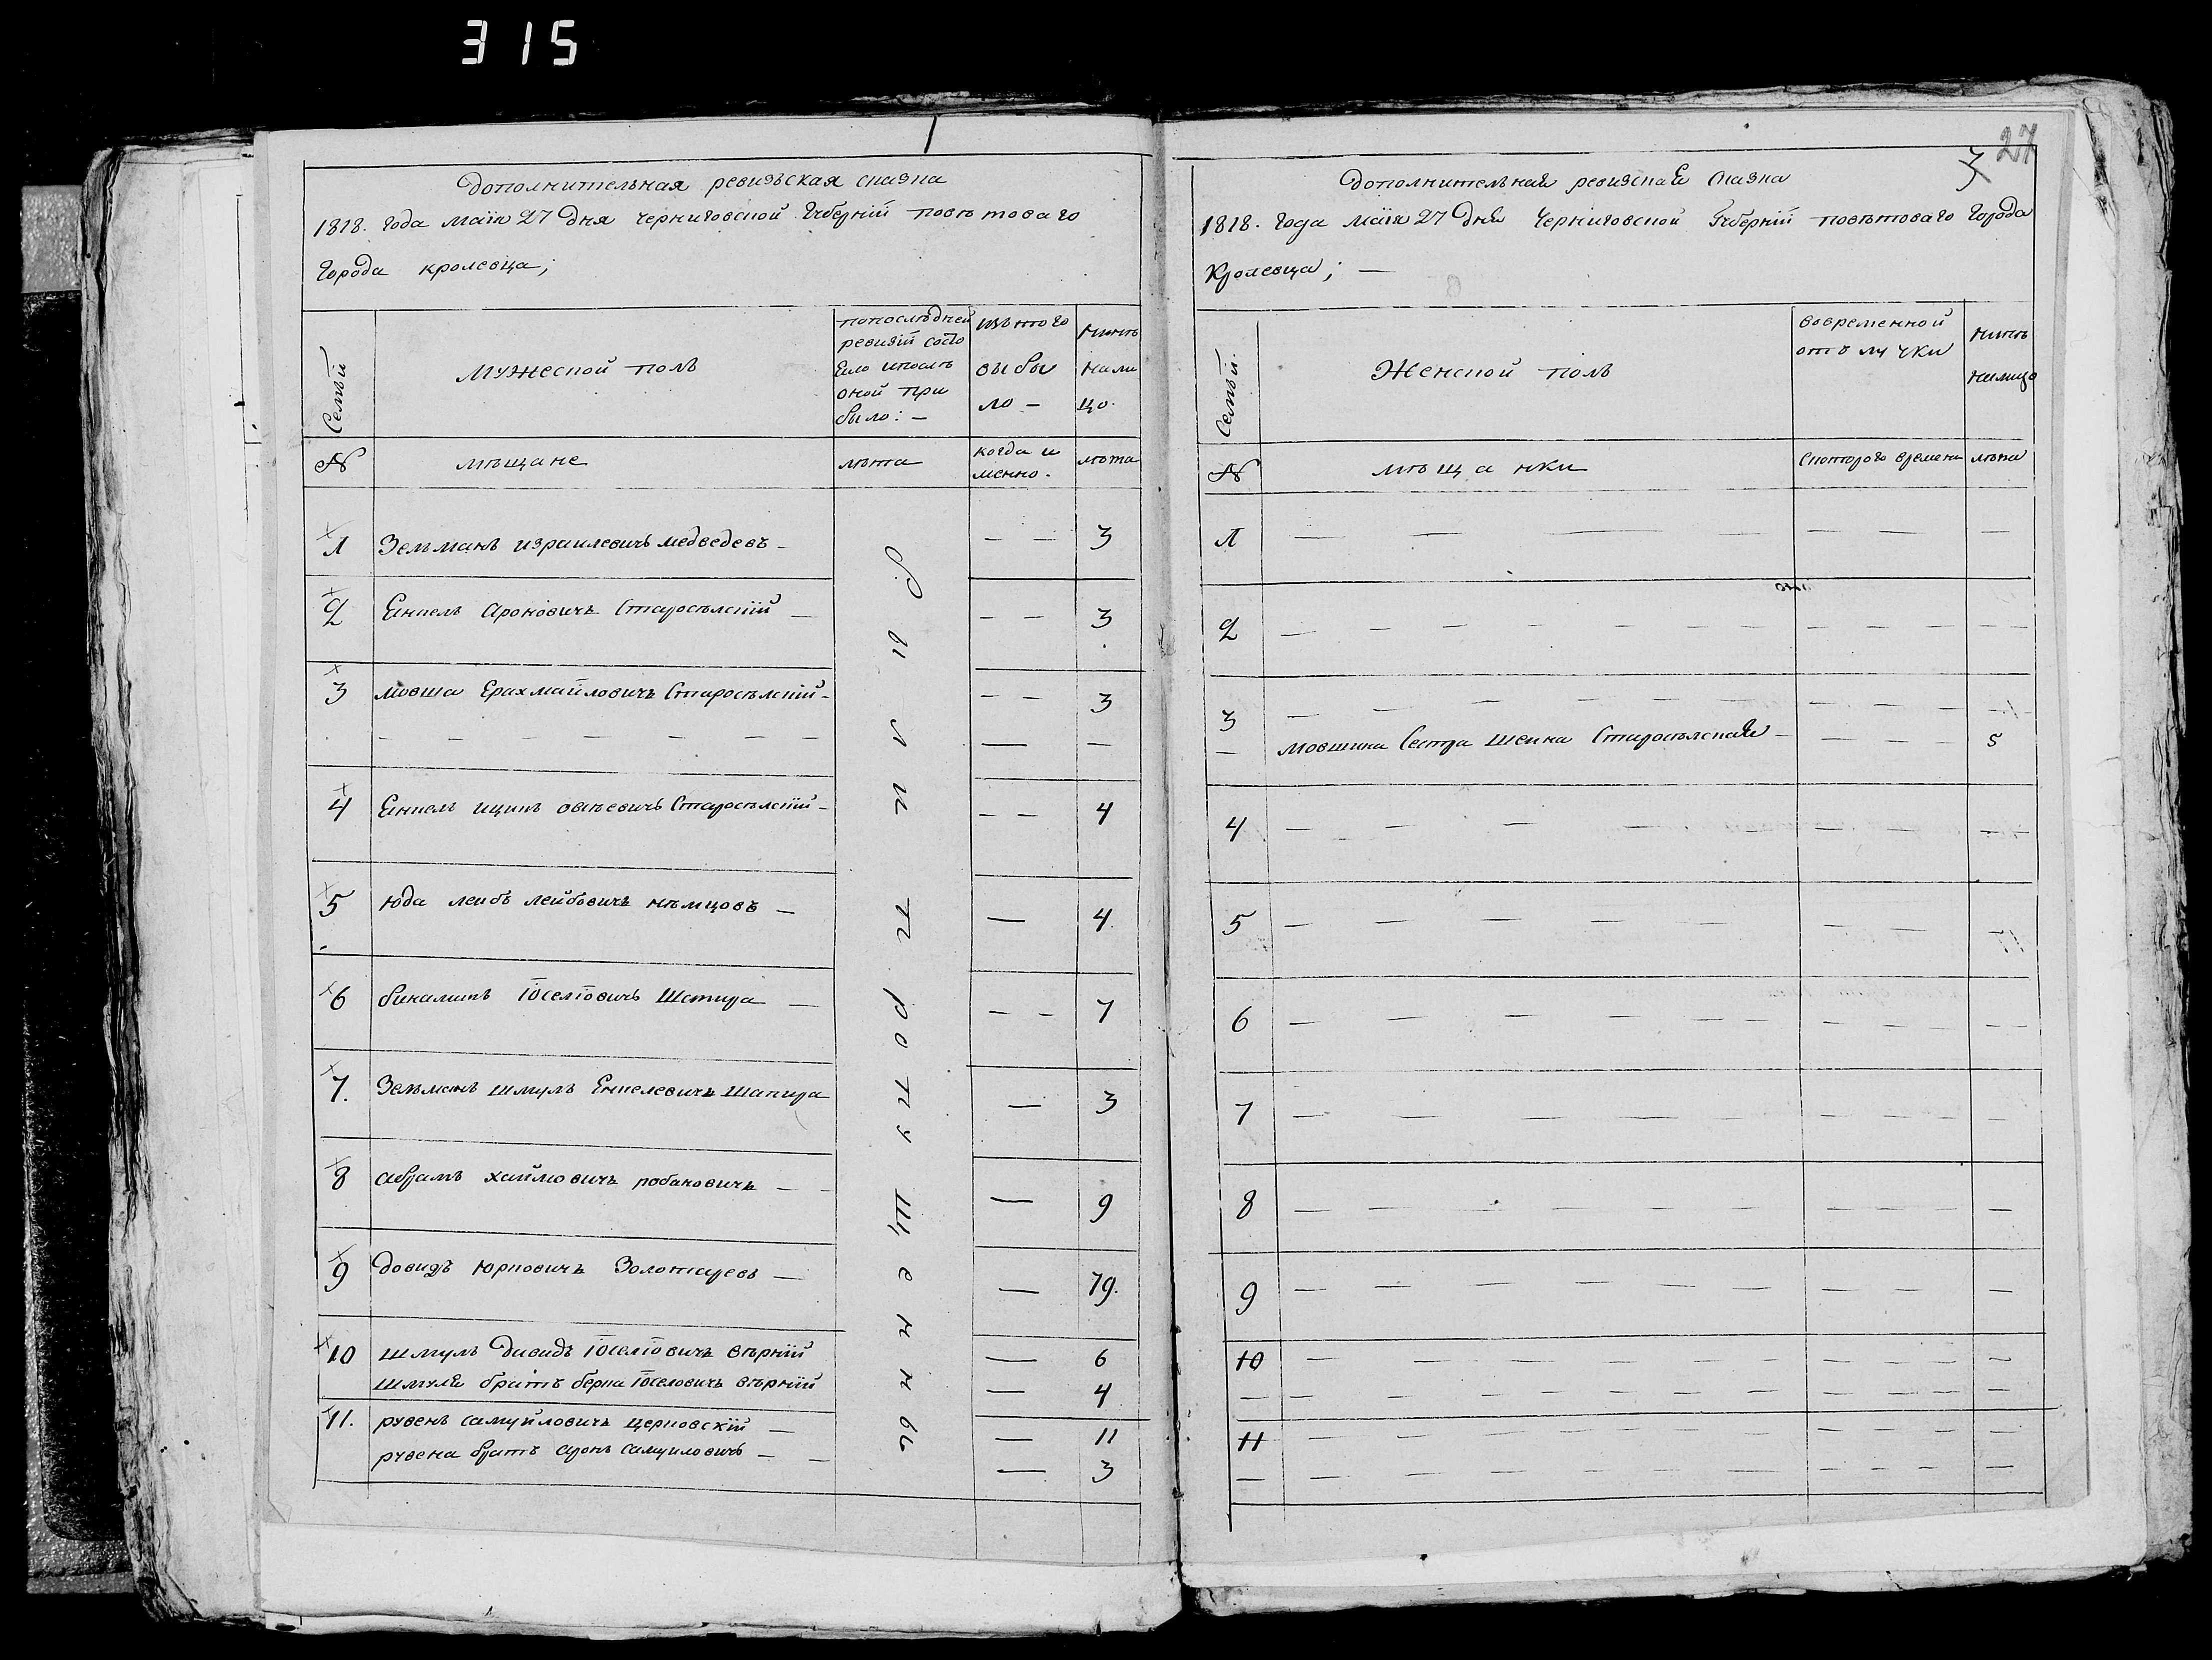 315
1
Дополнительная ревизьская сказка
1818. Года маія 27 дня Черниговской Губерніи повѣтоваго
Города кролевца;
Семьи
мужеской полъ
попослѣдней
ревизіи состо
Ело ипослѣ
оной при
было: —
изътого
выбы
ло —
Нынѣ
нали
цо.
№
мѣщане
лѣта
когда и
менно.
лѣта
1 Зельманъ израилевичъ медведевъ — — — 3
2 Енкель Ароновичъ Старосѣлскій — — — 3
3 мовша Ерахмайловичъ Старосѣлскій — — — 3
— — — — — — — — —
4 Енкель ицикъ овѣевичъ Старосѣлскій — — — 4
5 Юда леибъ лейбовичъ нѣмцовъ — — 4.
6 биналинъ Іоселіовичъ Шапира — — — 7
7. Зельманъ шмуль Енкелевичъ Шапира — 3
8 абрамъ хаймовичъ рабановичъ — — — 9
9 Довидъ Юрковичъ Золотаревъ — — 19.
10 шмуль Давидъ Іоселіовичъ вѣрній — 6
шмуля братъ берка Іоселовичъ вѣрній — 4
11. рувенъ самуйловичъ церковскій — — 11
рувена братъ аронъ самуиловичъ — — — 3
27
3
Дополнительная ревизская сказка
1818. Года маія 27 дня Черниговской Губерніи повѣтоваго Города
Кролевца; —
Семьи
Женской полъ
вовременной
отълучки
Нынѣ
налицо
№
мѣщанки
Скоторого времени
лѣта
1 — — — — — — —
2 — — — — — — — — —
3 — — — — — — — —
— Мовшина Сестра Шеина Старосѣлская — — — — 5
4 — — — — — — —
5 — — — — — —
6 — — — — — — — — —
7 — — — — — — — — —
8 — — — — — — — — —
9 — — — — — — — — —
10 — — — — — — — — —
— — — — — — — — — —
11 — — — — — — — — —
— — — — — — — — — —